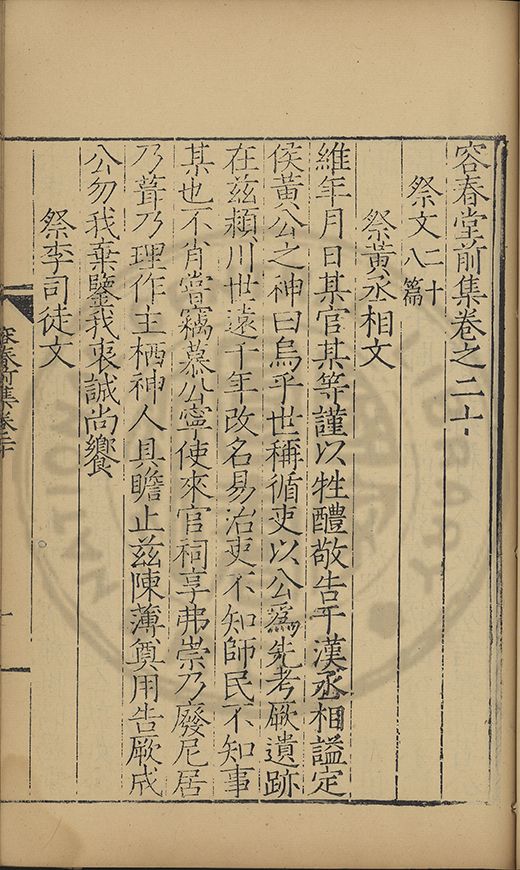 容春堂前集卷之二十
祭文二十八篇
祭黃丞相文
維年月日某官某等謹以牲醴敬告于漢丞相謚定
侯黃公之神曰烏乎世稱循吏以公爲先考厥遺跡
在兹潁川世遠千年改名易治吏不知師民不知事
某也不肖嘗竊慕公寧使來官祠享弗崇乃廢尼居
乃葺乃理作主栖神人具瞻止兹陳薄奠用告厥成
公勿我棄鑒我衷誠尚饗
祭李司徒文
容春前集卷二十